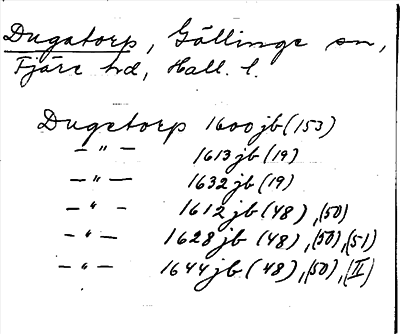 Dugatorp, Gällinge sn,
Fjäre hd, Hall. l.
Dugetorp 1600 jb (153)
— " — 1613 jb (19)
— " — 1632 jb (19)
— " — 1612 jb (48), (50)
— " — 1628 jb (48), (50), (51)
— " — 1644 jb (48), (50), (II)